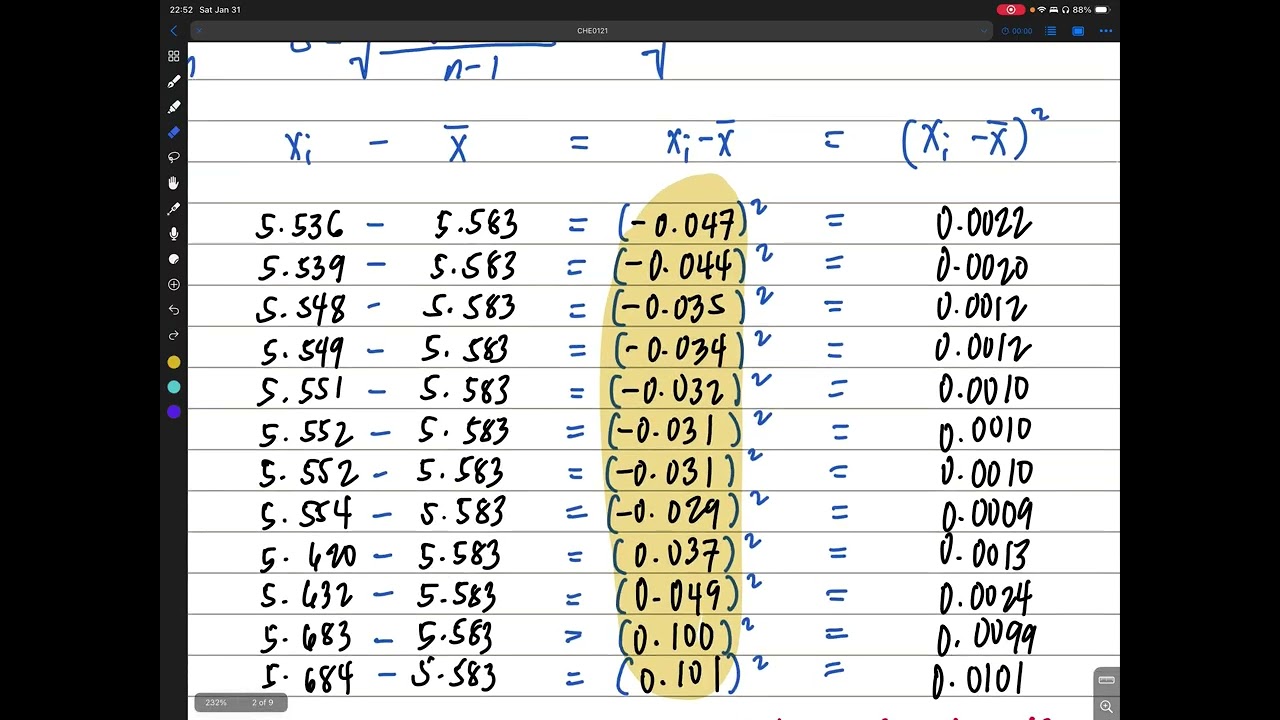 22:52 Sat Jan 31 88%
CHE0121
00:00
n-1
xi - x̄ = xi - x̄ = (xi - x̄)²
5.536 - 5.583 = (-0.047)² = 0.0022
5.539 - 5.583 = (-0.044)² = 0.0020
5.548 - 5.583 = (-0.035)² = 0.0012
5.549 - 5.583 = (-0.034)² = 0.0012
5.551 - 5.583 = (-0.032)² = 0.0010
5.552 - 5.583 = (-0.031)² = 0.0010
5.552 - 5.583 = (-0.031)² = 0.0010
5.554 - 5.583 = (-0.029)² = 0.0009
5.620 - 5.583 = (0.037)² = 0.0013
5.632 - 5.583 = (0.049)² = 0.0024
5.683 - 5.583 = (0.100)² = 0.0099
5.684 - 5.583 = (0.101)² = 0.0101
232% 2 of 9